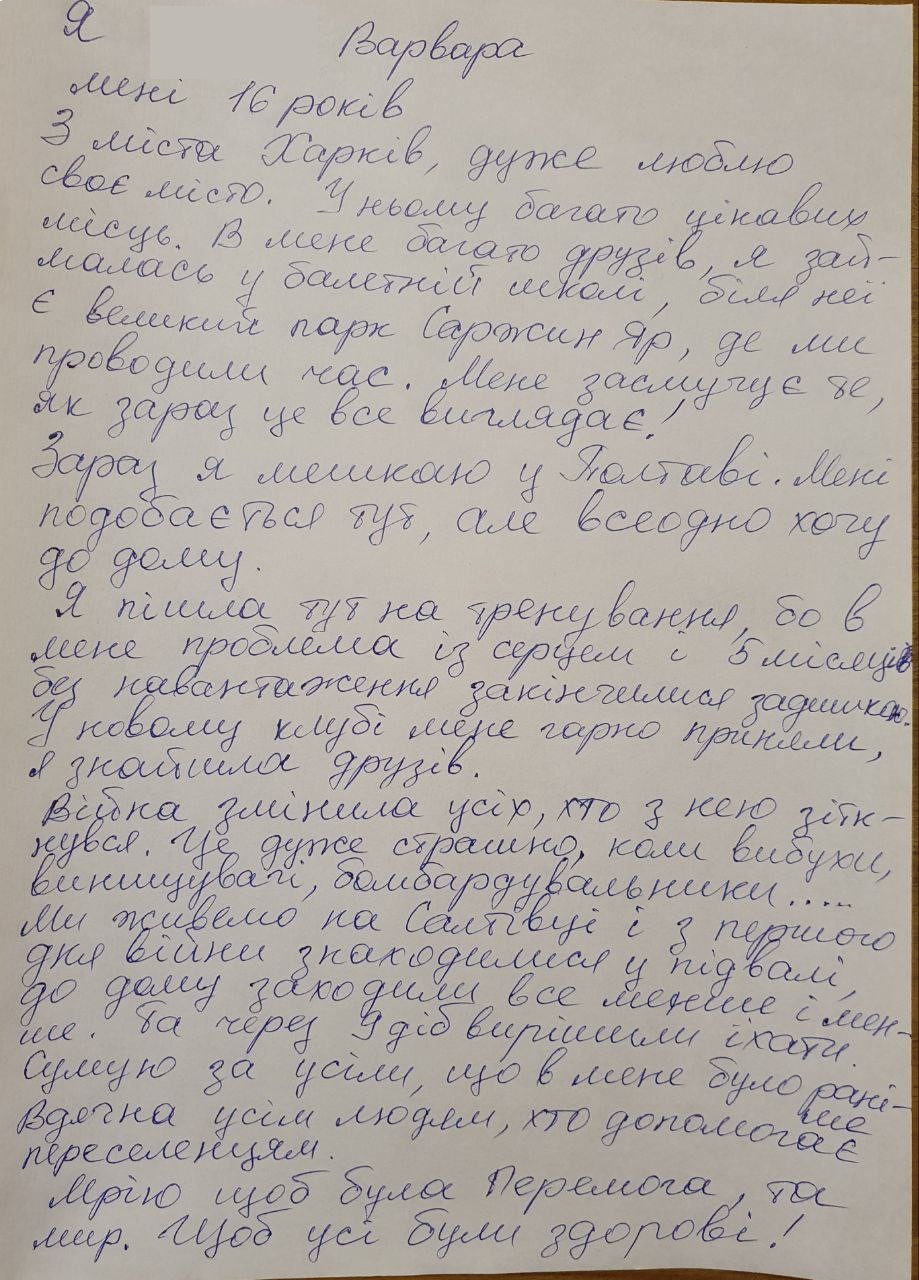 Я Варвара
мені 16 років
З міста Харків, дуже люблю
своє місто. У ньому багато цікавих
місць. В мене багато друзів, я зай-
малась у балетній школі, біля неї
є великий парк Саржин Яр, де ми
проводили час. Мене засмучує те,
як зараз це все виглядає!
Зараз я мешкаю у Полтаві. Мені
подобається тут, але всеодно хочу
до дому.
Я пішла тут на тренування, бо в
мене проблема із серцем і 5 місяців
без навантаження закінчилися задишкою.
У новому клубі мене гарно прийняли,
я знайшла друзів.
Війна змінила усіх, хто з нею зітк-
нувся. Це дуже страшно, коли вибухи,
винищувачі, бомбардувальники.....
Ми живемо на Салтівці і з першого
дня війни знаходилися у підвалі,
до дому заходили все менше і мен-
ше. Та через 9 діб вирішили їхати.
Сумую за усім, що в мене було рані-
ше
Вдячна усім людям, хто допомагає
переселенцям.
Мрію щоб була Перемога, та
мир. Щоб усі були здорові!